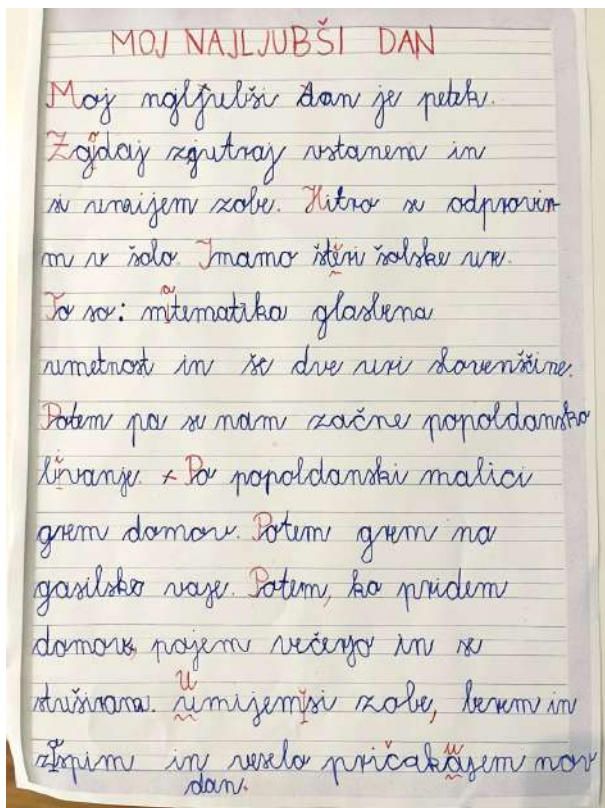 MOJ NAJLJUBŠI DAN
Moj najljubši dan je petek.
Zgodaj zjutraj vstanem in
si umijem zobe. Hitro se odpravim
m v šolo. Imamo štiri šolske ure.
To so: matematika glasbena
umetnost in še dve uri slovenščine.
Potem pa se nam začne popoldansko
bivanje. Po popoldanski malici
grem domov. Potem grem na
gasilske vaje. Potem, ko pridem
domov, pojem večerjo in se
stuširam. Umijem si zobe, berem in
zaspim in veselo pričakujem nov
dan.